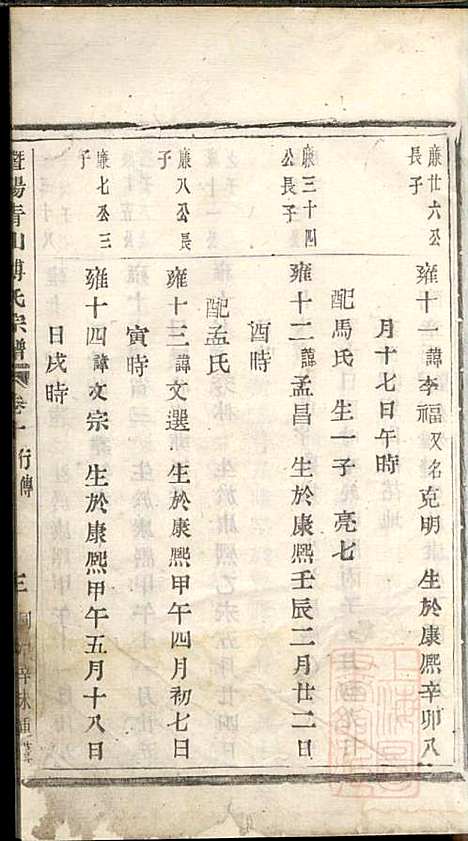 廉廿六公
長子
雍十一諱李福又名克明 生於康熙辛卯八
月十七日午時
配馬氏 生一子 亮七
廉三十四
公長子
雍十二諱孟昌 生於康熙壬辰二月廿二日
酉時
配孟氏
廉八公長
子
雍十三諱文選 生於康熙甲午四月初七日
寅時
廉七公三
子
雍十四諱文宗 生於康熙甲午五月十八日
日戌時
暨陽青山傅氏宗譜 卷 行傳